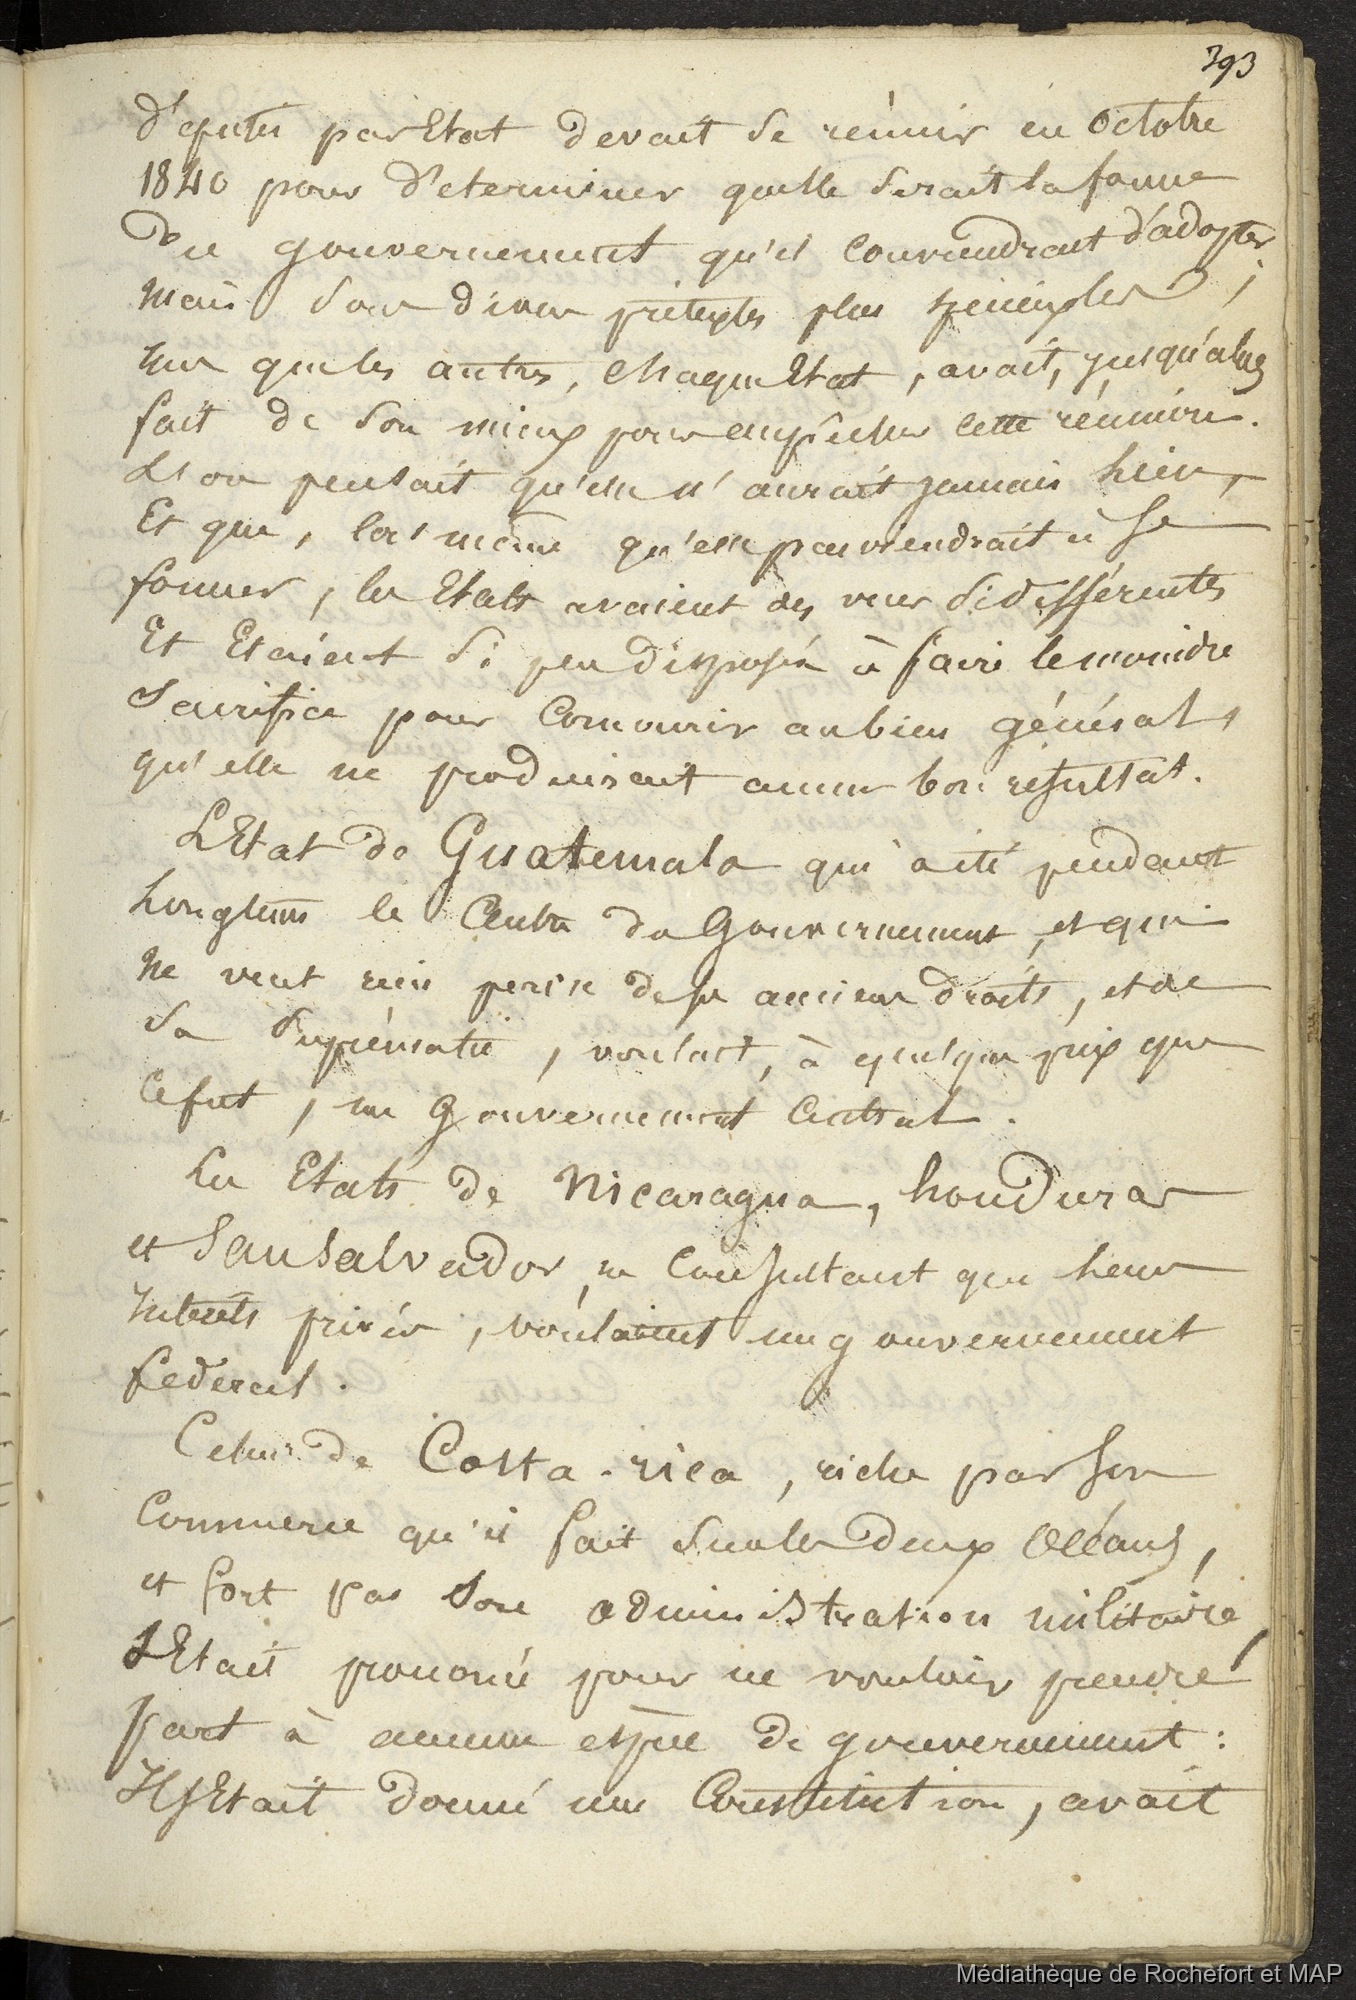 393
d'eputés par Etat devait se réunir en Octobre
1840 pour d'eterminer quelle serait la forme
du gouvernement qu'il conviendrait d'adopter,
mais sous divers prétextes plus
uns que les autres, chaque Etat, avait, jusqu'alors
fait de son mieux pour empêcher cette réunion.
L'on pensait qu'elle n'aurait jamais lieu,
Et que, lors même qu'elle parviendrait à se
former, les Etats avaient des vues si différentes
Et Etaient si peu disposés à faire le moindre
Sacrifice pour Concourir au bien général,
qu'elle ne produirait aucun bon résultat.
L'Etat de Guatemala qui a été pendant
Longtems le Centre du Gouvernement, et qui
Ne veut rien perdre de ses anciens droits, et de
Sa Suprématie, voulait, à quelque prix que
Ce fut, un Gouvernement Central.
Les Etats de Nicaragua, honduras
et San Salvador, ne Consultant que leurs
Intérêts privés, voulaient un gouvernement
federal.
Celui de Costa-rica, riche par son
Commerce qu'il fait sur les deux Océans,
et fort par son administration militaire,
s'Etait prononcé pour ne vouloir prendre
part à aucune espèce de gouvernement:
Il s'Etait donné une Constitution, avait
Médiathèque de Rochefort et MAP